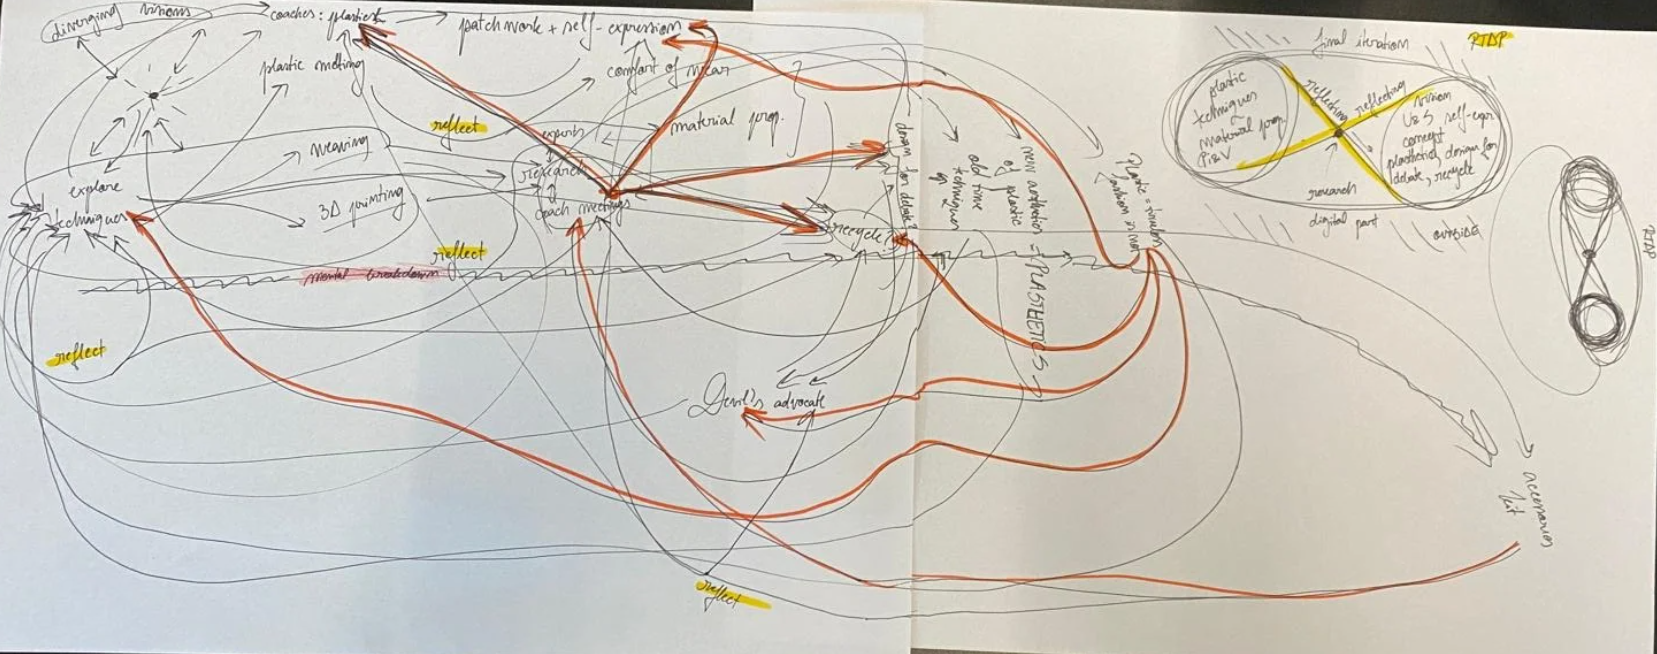 diverging visions
coaches: plastics
patchwork + self-expression
plastic melting
comfort of wear
reflect
experts
material prop.
weaving
research
explore
techniques
3D printing
coach meetings
recycle?
design for debate?
old time
techniques
new aesthetics
of plastic
= PLASTHETICS
fashion = not
reflect
mental breakdown
reflect
Devil's advocate
reflect
accessories
kit
final iteration
RTDP
plastic
techniques
~
material prop.
reflecting
reflecting
vision
self-expr.
concept
plasthetics, design for
debate, recycle
research
digital part
outside
RTDP